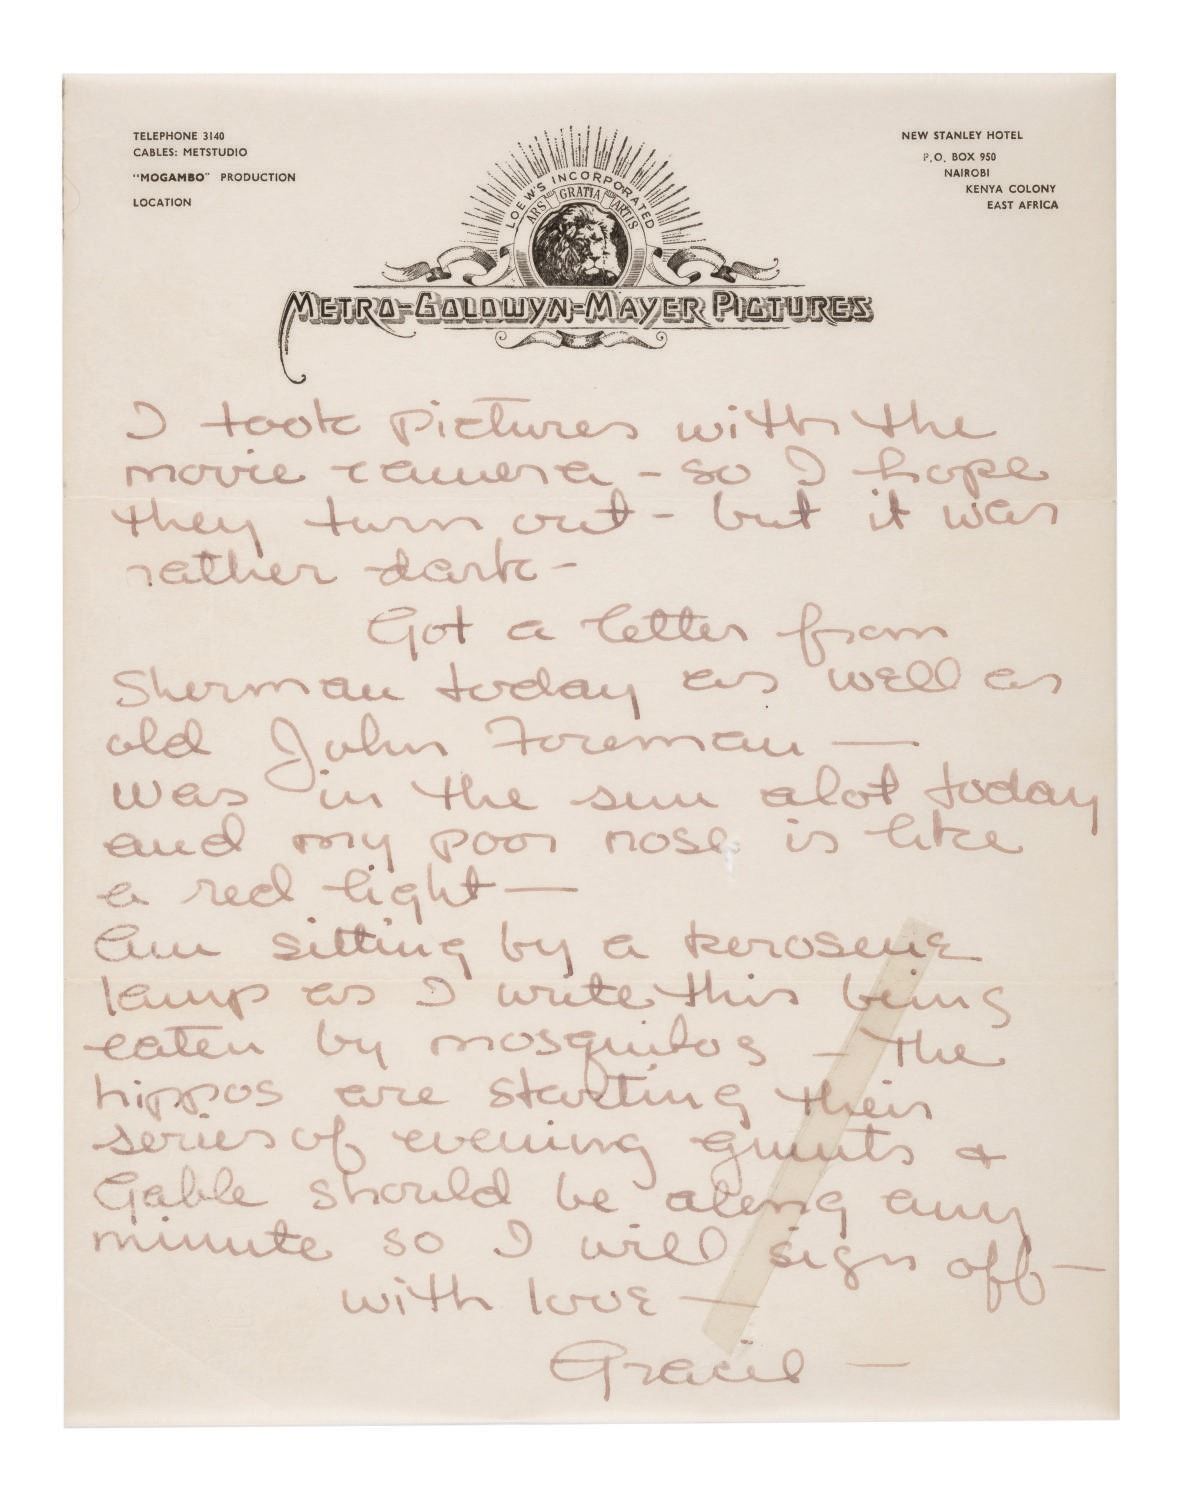 TELEPHONE 3140
CABLES: METSTUDIO
"MOGAMBO" PRODUCTION
LOCATION
NEW STANLEY HOTEL
P.O. BOX 950
NAIROBI
KENYA COLONY
EAST AFRICA
LOEW'S INCORPORATED
ARS GRATIA ARTIS
METRO-GOLDWYN-MAYER PICTURES
I took pictures with the
movie camera - so I hope
they turn out - but it was
rather dark -
Got a letter from
Sherman today as well as
old John Foreman —
was in the sun alot today
and my poor nose is like
a red light —
Am sitting by a kerosene
lamp as I write this being
eaten by mosquitos - The
hippos are starting their
series of evening grunts &
Gable should be along any
minute so I will sign off —
with love —
Gracie —